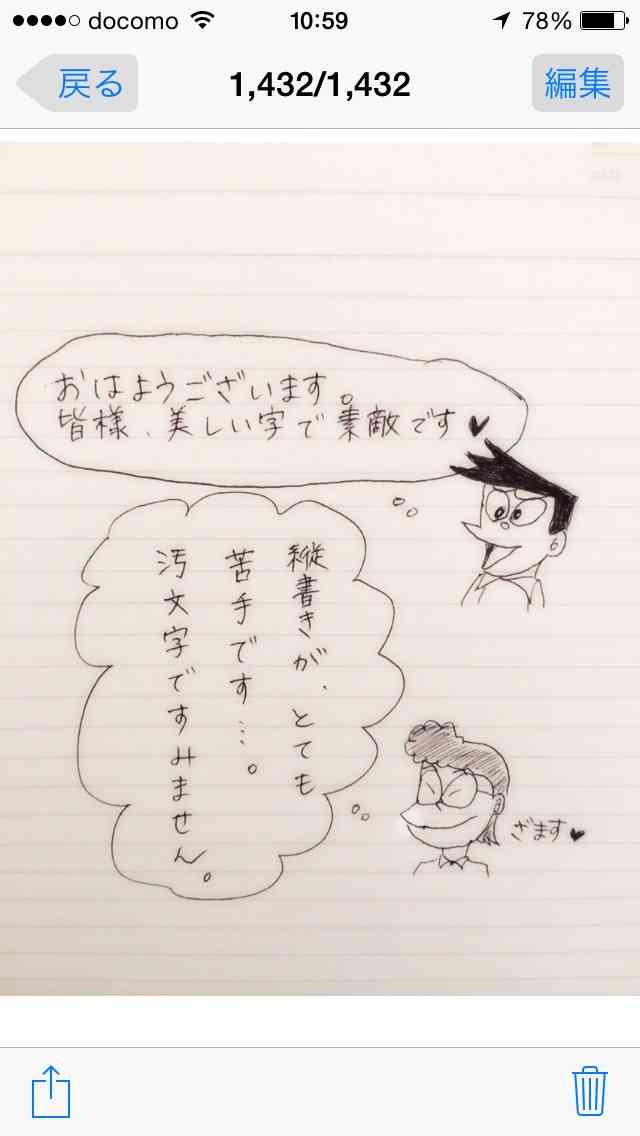 docomo 10:59 78%
戻る 1,432/1,432 編集
おはようございます。
皆様、美しい字で素敵です♥
縦書きが、とても
苦手です…。
汚文字ですみません。
ざます♥